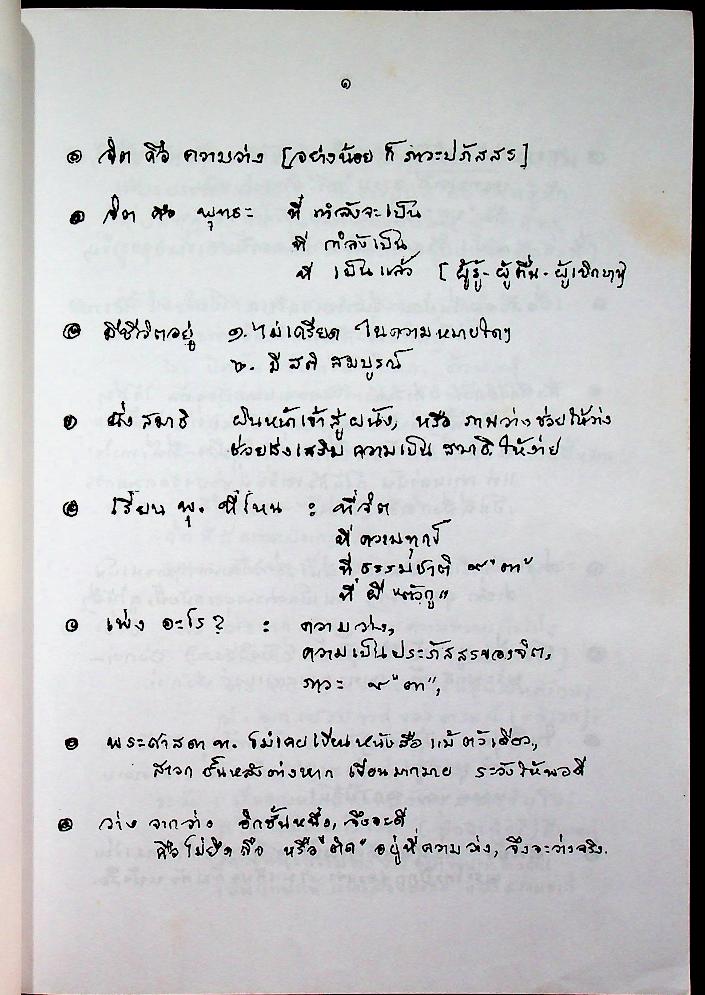 ๑
๏ จิต คือ ความว่าง [อย่างน้อย ก็ ภาวะปภัสสร]
๏ จิต คือ พุทธะ ที่ กำลังจะเป็น
ที่ กำลังเป็น
ที่ เป็นแล้ว [ผู้รู้-ผู้ตื่น-ผู้เบิกบาน]
๏ มีชีวิตอยู่ ๑. ไม่เครียด ในความหมายใดๆ
๒. มี สติ สมบูรณ์
๏ นั่ง สมาธิ ผินหน้าเข้าสู่ ผนัง, หรือ ภาพว่าง ช่วยให้ว่าง
ช่วยส่งเสริม ความเป็น สมาธิ ให้ง่าย
๏ เรียน พุ. ที่ไหน : ที่จิต
ที่ ความทุกข์
ที่ ธรรมชาติ
ที่ ผี "ตัวกู"
๏ เพ่ง อะไร? : ความว่าง,
ความเป็นประภัสสรของจิต,
ภาวะ
๏ พระศาสดา ท. ไม่เคยเขียนหนังสือ แม้ ตัวเดียว,
สาวก ชั้นหลังต่างหาก เขียนมากมาย ระวังให้พอดี
๏ ว่าง จากว่าง อีกชั้นหนึ่ง, จึงจะดี
คือ ไม่ยึด ถือ หรือ "ติด" อยู่ที่ความว่าง, จึงจะว่างจริง.